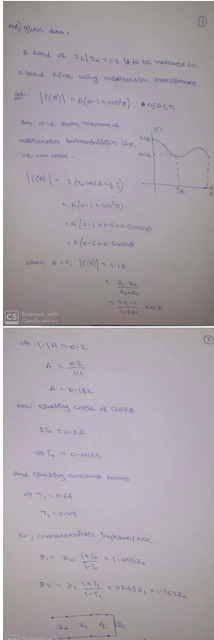 ①
Ans) given data,
A load of ZL/Z0 = 1.5 is to be matched to
a feed line using multisection transformer
Sol: |Γ(θ)| = A(0.1 + cos²θ), 0≤θ≤π
|Γ|
1.1A
0.1A
π/2
π
For N=2 from theorem of
multisection line
we can write
|Γ(θ)| = 2(Γ0 cos2θ + ½ Γ1)
= A(0.1 + cos²θ)
= A(0.1 + 0.5 + 0.5cos2θ)
= A(0.6 + 0.5cos2θ)
When θ = 0, |Γ(θ)| = 1.1A
= ZL - Z0 / ZL + Z0
= 1.5 - 1 / 1.5 + 1 = 0.2
CS Scanned with
CamScanner
②
⇒ 1.1A = 0.2
A = 0.2 / 1.1
A = 0.182
Now equating coeff of cos2θ
2Γ0 = 0.5A
⇒ Γ0 = 0.0455
And equating constant terms
⇒ Γ1 = 0.6A
Γ1 = 0.109
So, characteristic impedance are
Z1 = Z0 1+Γ0 / 1-Γ0 = 1.095Z0
Z2 = Z1 1+Γ1 / 1-Γ1 = 1.245Z1 = 1.363Z0
Z0 Z1 Z2 ZL